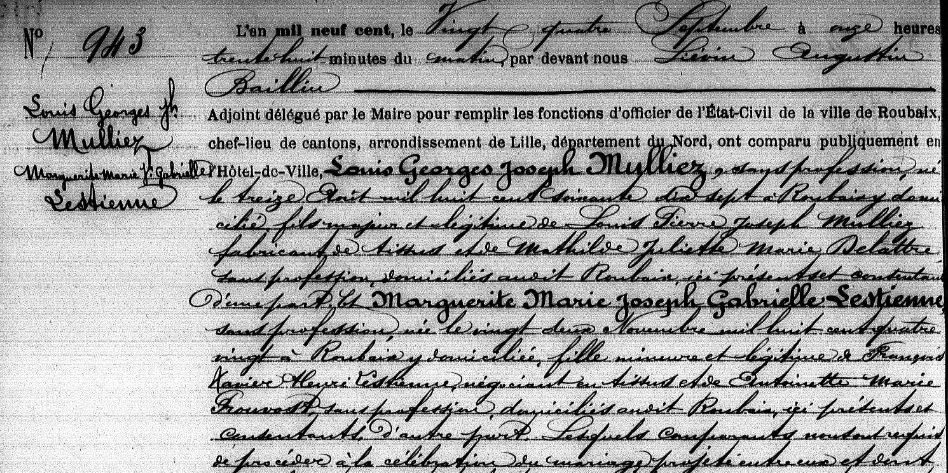 No 943
Louis Georges Jh
Mulliez
Marguerite Marie Jh Gabrielle
Lestienne
L'an mil neuf cent, le Vingt quatre Septembre à onze heures
trente huit minutes du matin, par devant nous Liévin Augustin
Baillin
Adjoint délégué par le Maire pour remplir les fonctions d'officier de l'État-Civil de la ville de Roubaix,
chef-lieu de cantons, arrondissement de Lille, département du Nord, ont comparu publiquement en
l'Hôtel-de-Ville, Louis Georges Joseph Mulliez, sans profession, né
le treize Août mil huit cent soixante dix sept à Roubaix y domi
cilié, fils majeur et légitime de Louis Pierre Joseph Mulliez
fabricant de tissus et de Mathilde Juliette Marie Delattre
sans profession, domiciliés audit Roubaix, ici présents et consentant
d'une part, Et Marguerite Marie Joseph Gabrielle Lestienne
sans profession, née le vingt deux Novembre mil huit cent quatre
vingt à Roubaix y domiciliée, fille mineure et légitime de François
Xavier Henri Lestienne, négociant en tissus et de Antoinette Marie
Prouvost, sans profession, domiciliés audit Roubaix, ici présents et
consentants, d'autre part. Lesquels comparants nous ont requis
de procéder à la célébration du mariage projeté entre eux et dont